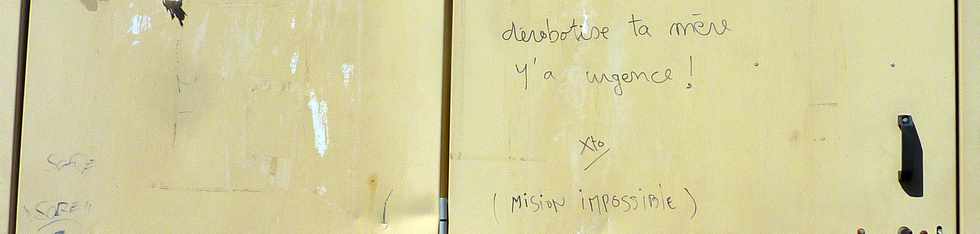 dérobotise ta mère
Y'a urgence !
Xto
(MISION IMPOSSIBLE)